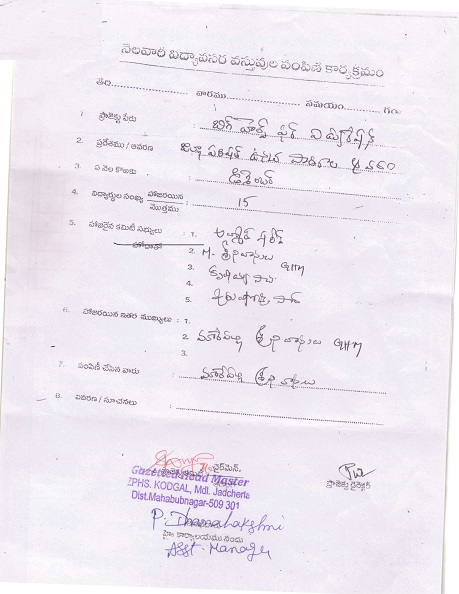 నెలవారీ విద్యావసర వస్తువుల పంపిణీ కార్యక్రమం
తేది.................. వారము........................ సమయం............ గం॥
1. ప్రాజెక్టు పేరు : బిగ్ హెల్ప్ ఫర్ ఎడ్యుకేషన్
2. ప్రదేశము / ఆవరణ : జిల్లా పరిషత్ ఉన్నత పాఠశాల
3. ఏ నెల కొఱకు : డిశెంబర్
4. విద్యార్థుల సంఖ్య హాజరయిన : 15
మొత్తము
5. హాజరైన కమిటి సభ్యులు : 1.
హోదాతో 2. M. శ్రీనివాసులు GHM
3.
4.
5.
6. హాజరయిన ఇతర ముఖ్యులు : 1.
2. మారేపల్లి శ్రీనివాసులు GHM
3.
7. పంపిణీ చేసిన వారు : మారేపల్లి శ్రీనివాసులు
8. వివరణ / సూచనలు :
ఛైర్మెన్.
Gazetted Head Master
ZPHS. KODGAL, Mdl. Jadcherla
Dist.Mahabubnagar-509 301
ప్రాజెక్టు డైరెక్టర్
P. Dhanalakshmi
హె కార్యాలయము నందు
Asst. Manager